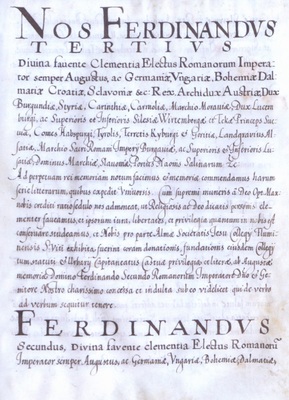 NOS FERDINANDVS
TERTIVS
Divina favente Clementia Electus Romanorum Impera-
tor semper Augustus, ac Germaniæ, Vngariæ, Bohemiæ Dal-
matiæ Croatiæ, Sclavoniæ &c: Rex. Archidux Austriæ Dux
Burgundiæ, Styriæ, Carinthiæ, Carniolæ, Marchio Moraviæ, Dux Lucem
burgi, ac Superioris et Inferioris Silesiæ Wirtembergæ et Tekæ, Princeps Sue
viæ, Comes Habspurgi, Tyrolis, Ferretis Kyburgi et Goritiæ, Landgravius Al
satiæ, Marchio Sacri Romani Imperij Burgauiæ, ac Superioris et Inferioris Lu
satiæ, Dominus Marchiæ, Sclavoniæ, Portus Naonis Salinarum &c.
Ad perpetuam rei memoriam notum facimus et memoriæ commendamus harum
serie litterarum, quibus expedit Vniversis. Cum supremi muneris à Deo Opt. Max
nobis crediti ratio sedulo nos admoneat, ut Religiosis ac Deo dicatis personis cle-
menter faveamus, et ipsorum iura, libertates, et privilegia quantum in nobis est
conservare studeamus, et Nobis pro parte Almæ Societatis Jesu Collegij
nensis S. Viti exhibita fuerint coram donationis, fundationis eiusdem Collegij
tum statim et cætusq privilegia cælteræ, ab Augustæ
memoriæ Domino Ferdinando Secundo Romanorum Imperatore Dno et Ge-
nitore Nostro charissimo concessa et indulta subeo videlicet qui de verbo
ad verbum sequitur tenore.
FERDINANDVS
Secundus, Divina favente clementia Electus Romanorū
Imperator semper Augustus, ac Germaniæ, Vngariæ, Bohemiæ, Dalmatiæ,